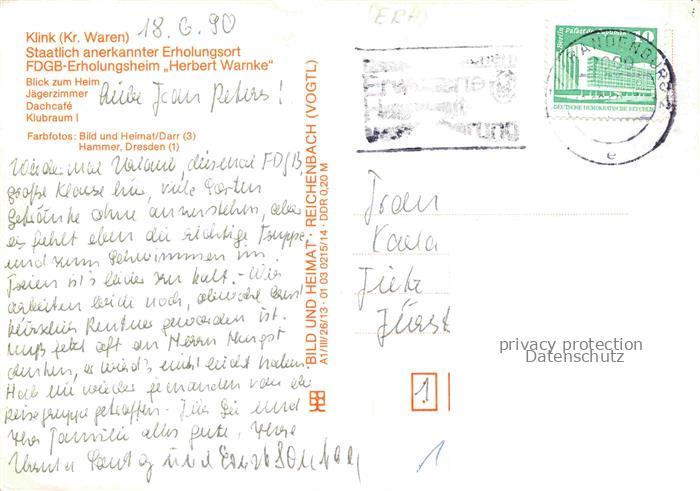 Klink (Kr. Waren) 18.6.90
Staatlich anerkannter Erholungsort
FDGB-Erholungsheim „Herbert Warnke“
Blick zum Heim
Jägerzimmer
Dachcafé
Klubraum I
Liebe Frau Peters!
Farbfotos: Bild und Heimat/Darr (3)
Hammer, Dresden (1)
Wieder mal Urlaub, diesmal FDGB,
große Klasse hier, viele Sorten
Getränke ohne anzustehen, aber
es fehlt eben die richtige Truppe
und zum Schwimmen im
Freien ist's leider zu kalt. - Wir
arbeiten beide noch, obwohl Ernst
Rentner geworden ist.
Muß jetzt oft an Herrn
denken, er wird's nicht leicht haben.
Hab nie wieder jemanden von der
Reisegruppe getroffen. Für Sie und
Ihre Familie alles gute, Ihre
und
BILD UND HEIMAT · REICHENBACH (VOGTL)
A1/III/26/13 · 01 03 0215/14 · DDR 0,20 M
(ERH)
10
Berlin, Palast der Republik
DEUTSCHE DEMOKRATISCHE REPUBLIK
BRANDENBURG 2
e
Frau
privacy protection
Datenschutz
1
1